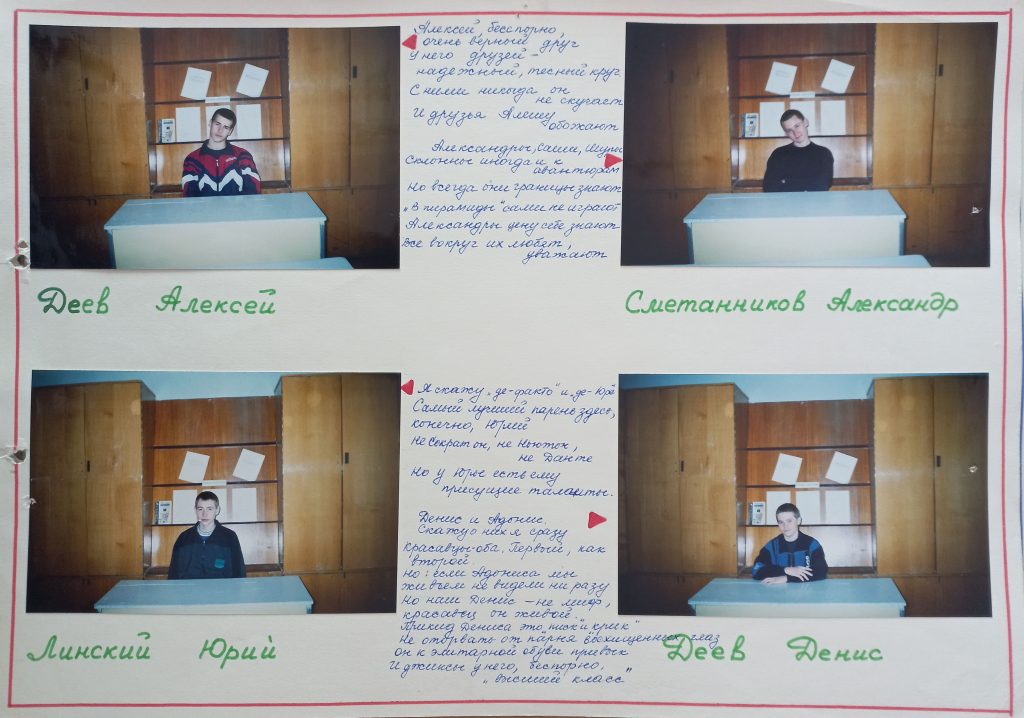 Алексей, бесспорно,
очень верный друг
У него друзей –
надежный, тесный круг
С ними никогда он
не скучает
И друзья Алешу
обожают
Александры, Саши, Шуры
Склонны иногда и к
авантюрам
Но всегда они границы знают
„В пирамиды" сами не играют
Александры цену себе знают
Все вокруг их любят,
уважают
Деев Алексей
Сметанников Александр
Я скажу „де-факто" и „де-юре
Самый лучший парень здесь,
конечно, Юрий
Не Сократ он, не Ньютон,
не Данте
Но у Юры есть ему
присущие таланты.
Денис и Адонис.
Скажу о них я сразу
Красавцы-оба. Первый, как
второй.
Но: если Адониса мы
живьем не видели ни разу
Но наш Денис – не миф,
красавец он живой.
Прикид Дениса это „писк" и „крик"
Не оторвать от парня восхищенных глаз
Он к элитарной обуви привык
И джинсы у него, бесспорно,
„высший класс"
Линский Юрий
Деев Денис